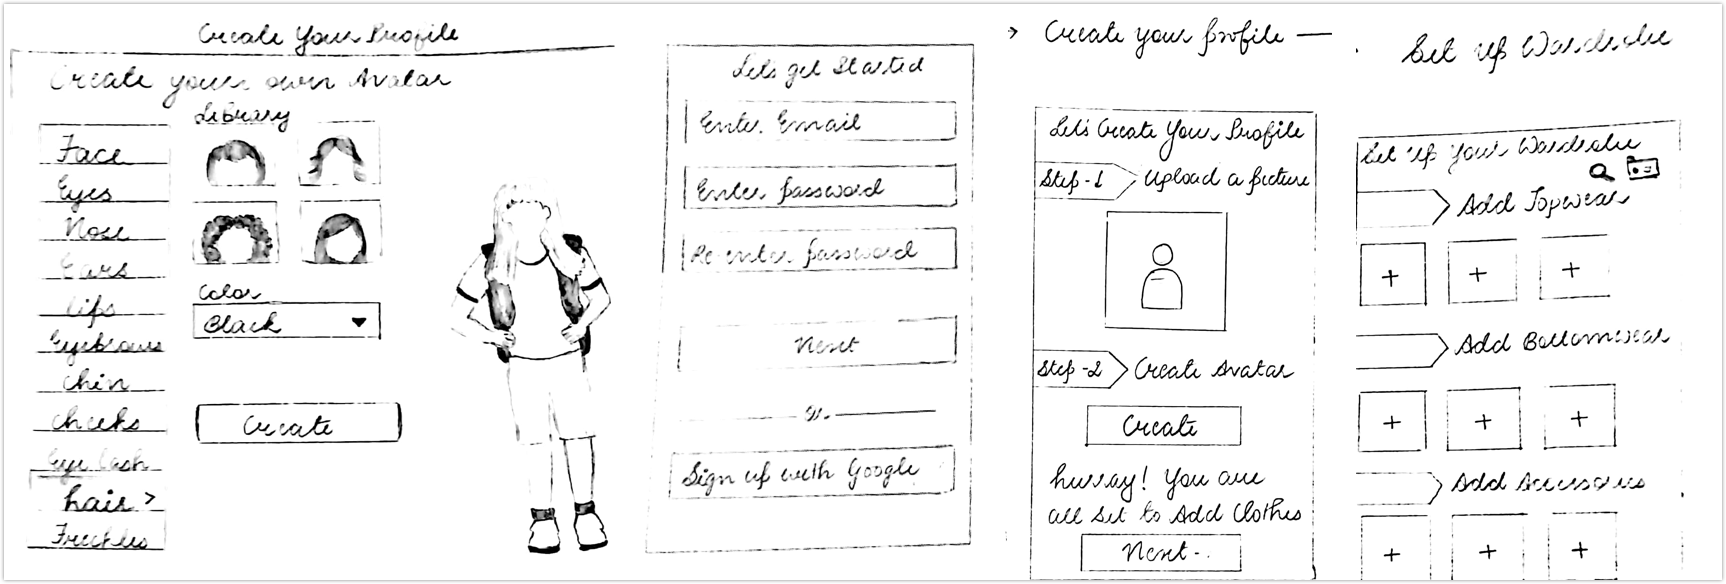 Create Your Profile
Create your own Avatar
Library
Face
Eyes
Nose
Ears
lips
Eyebrows
Chin
cheeks
Eye lash
hair >
Freckles
Color
Black
Create
Let's get Started
Enter Email
Enter password
Re-enter password
Next
Or
Sign up with Google
Create your profile
Let's Create Your Profile
Step-1 Upload a picture
Step-2 Create Avatar
Create
hurray! You are
all set to Add Clothes
Next-..
Set up Wardrobe
Set up Your Wardrobe
Add Topwear
+ + +
Add Bottomwear
+ + +
Add Accessories
+ + +